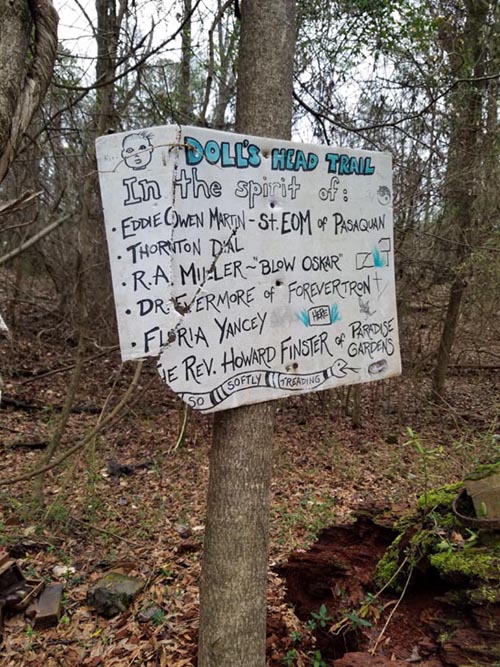 DOLL'S HEAD TRAIL
In the spirit of:
• EDDIE OWEN MARTIN - ST. EOM of PASAQUAN
• THORNTON DIAL
• R.A. MILLER ~ "BLOW OSKAR"
• DR. EVERMORE of FOREVERTRON
• FLORIA YANCEY
HERE
REV. HOWARD FINSTER of PARADISE GARDENS
SO SOFTLY TREADING